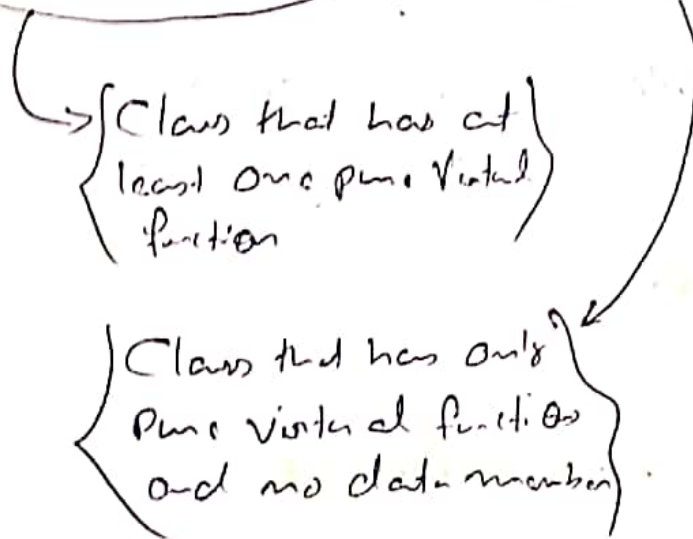 Class that has at
least one pure Virtual
function
Class that has only
pure virtual function
and no data member